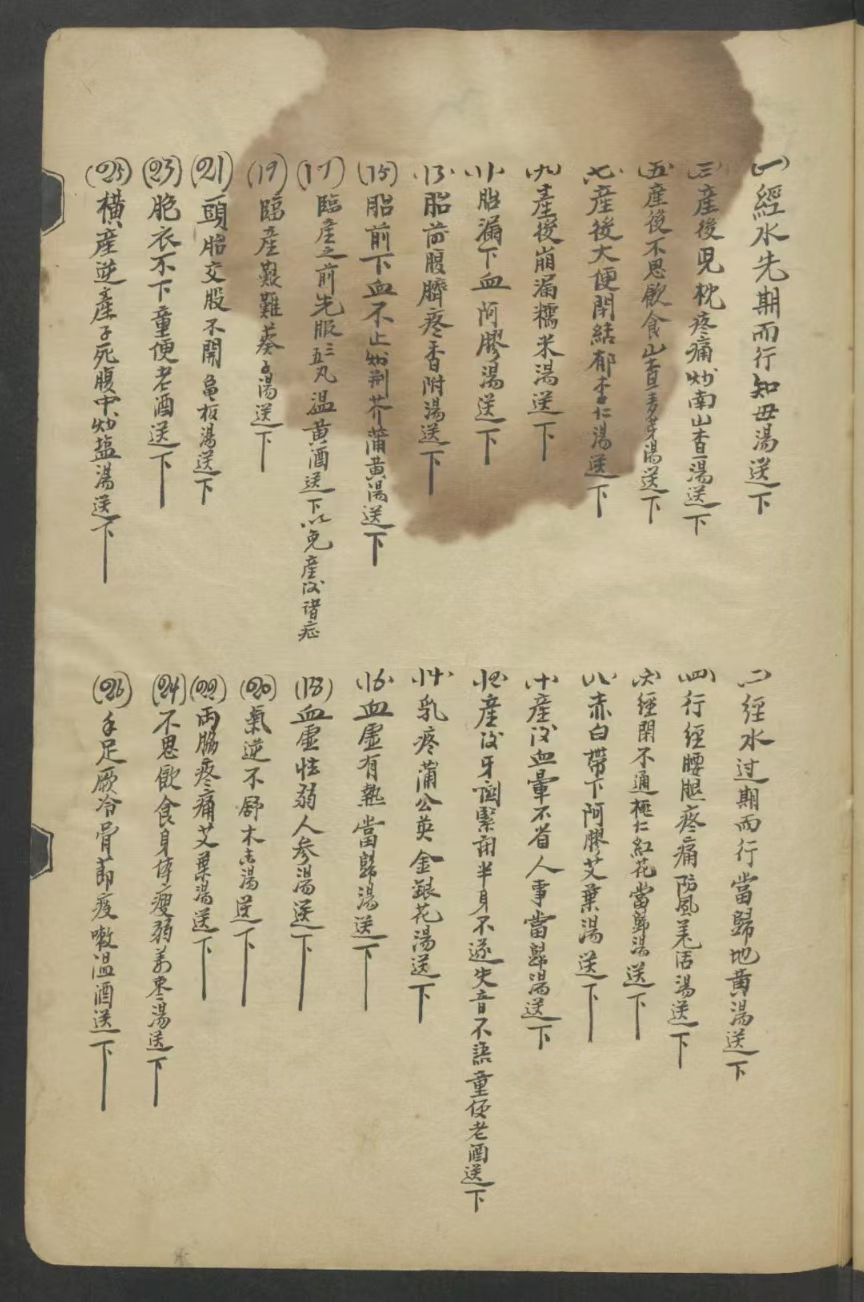 (一)經水先期而行知母湯送下
(二)經水过期而行當歸地黃湯送下
(三)產後児枕疼痛炒南山查湯送下
(四)行經腰腿疼痛防風羌活湯送下
(五)產後不思飲食山查麦芽湯送下
(六)經閉不通桃仁紅花當歸湯送下
(七)產後大便閉結郁李仁湯送下
(八)赤白帶下阿膠艾葉湯送下
(九)產後崩漏糯米湯送下
(十)產后血暈不省人事當歸湯送下
(11)胎漏下血阿膠湯送下
(12)產后牙関緊閉半身不遂失音不語童便老酒送下
(13)胎前腹臍疼香附湯送下
(14)乳疼蒲公英金銀花湯送下
(15)胎前下血不止炒荆芥蒲黄湯送下
(16)血虛有熱當歸湯送下
(17)臨產之前先服三五丸温黄酒送下以免產后诸症
(18)血虛怯弱人参湯送下
(19)臨產艱難葵子湯送下
(20)氣逆不舒木香湯送下
(21)頭胎交股不開龟板湯送下
(22)两脇疼痛艾葉湯送下
(23)胞衣不下童便老酒送下
(24)不思飲食身体瘦弱姜枣湯送下
(25)横產逆產子死腹中炒盐湯送下
(26)手足厥冷骨節疼温酒送下